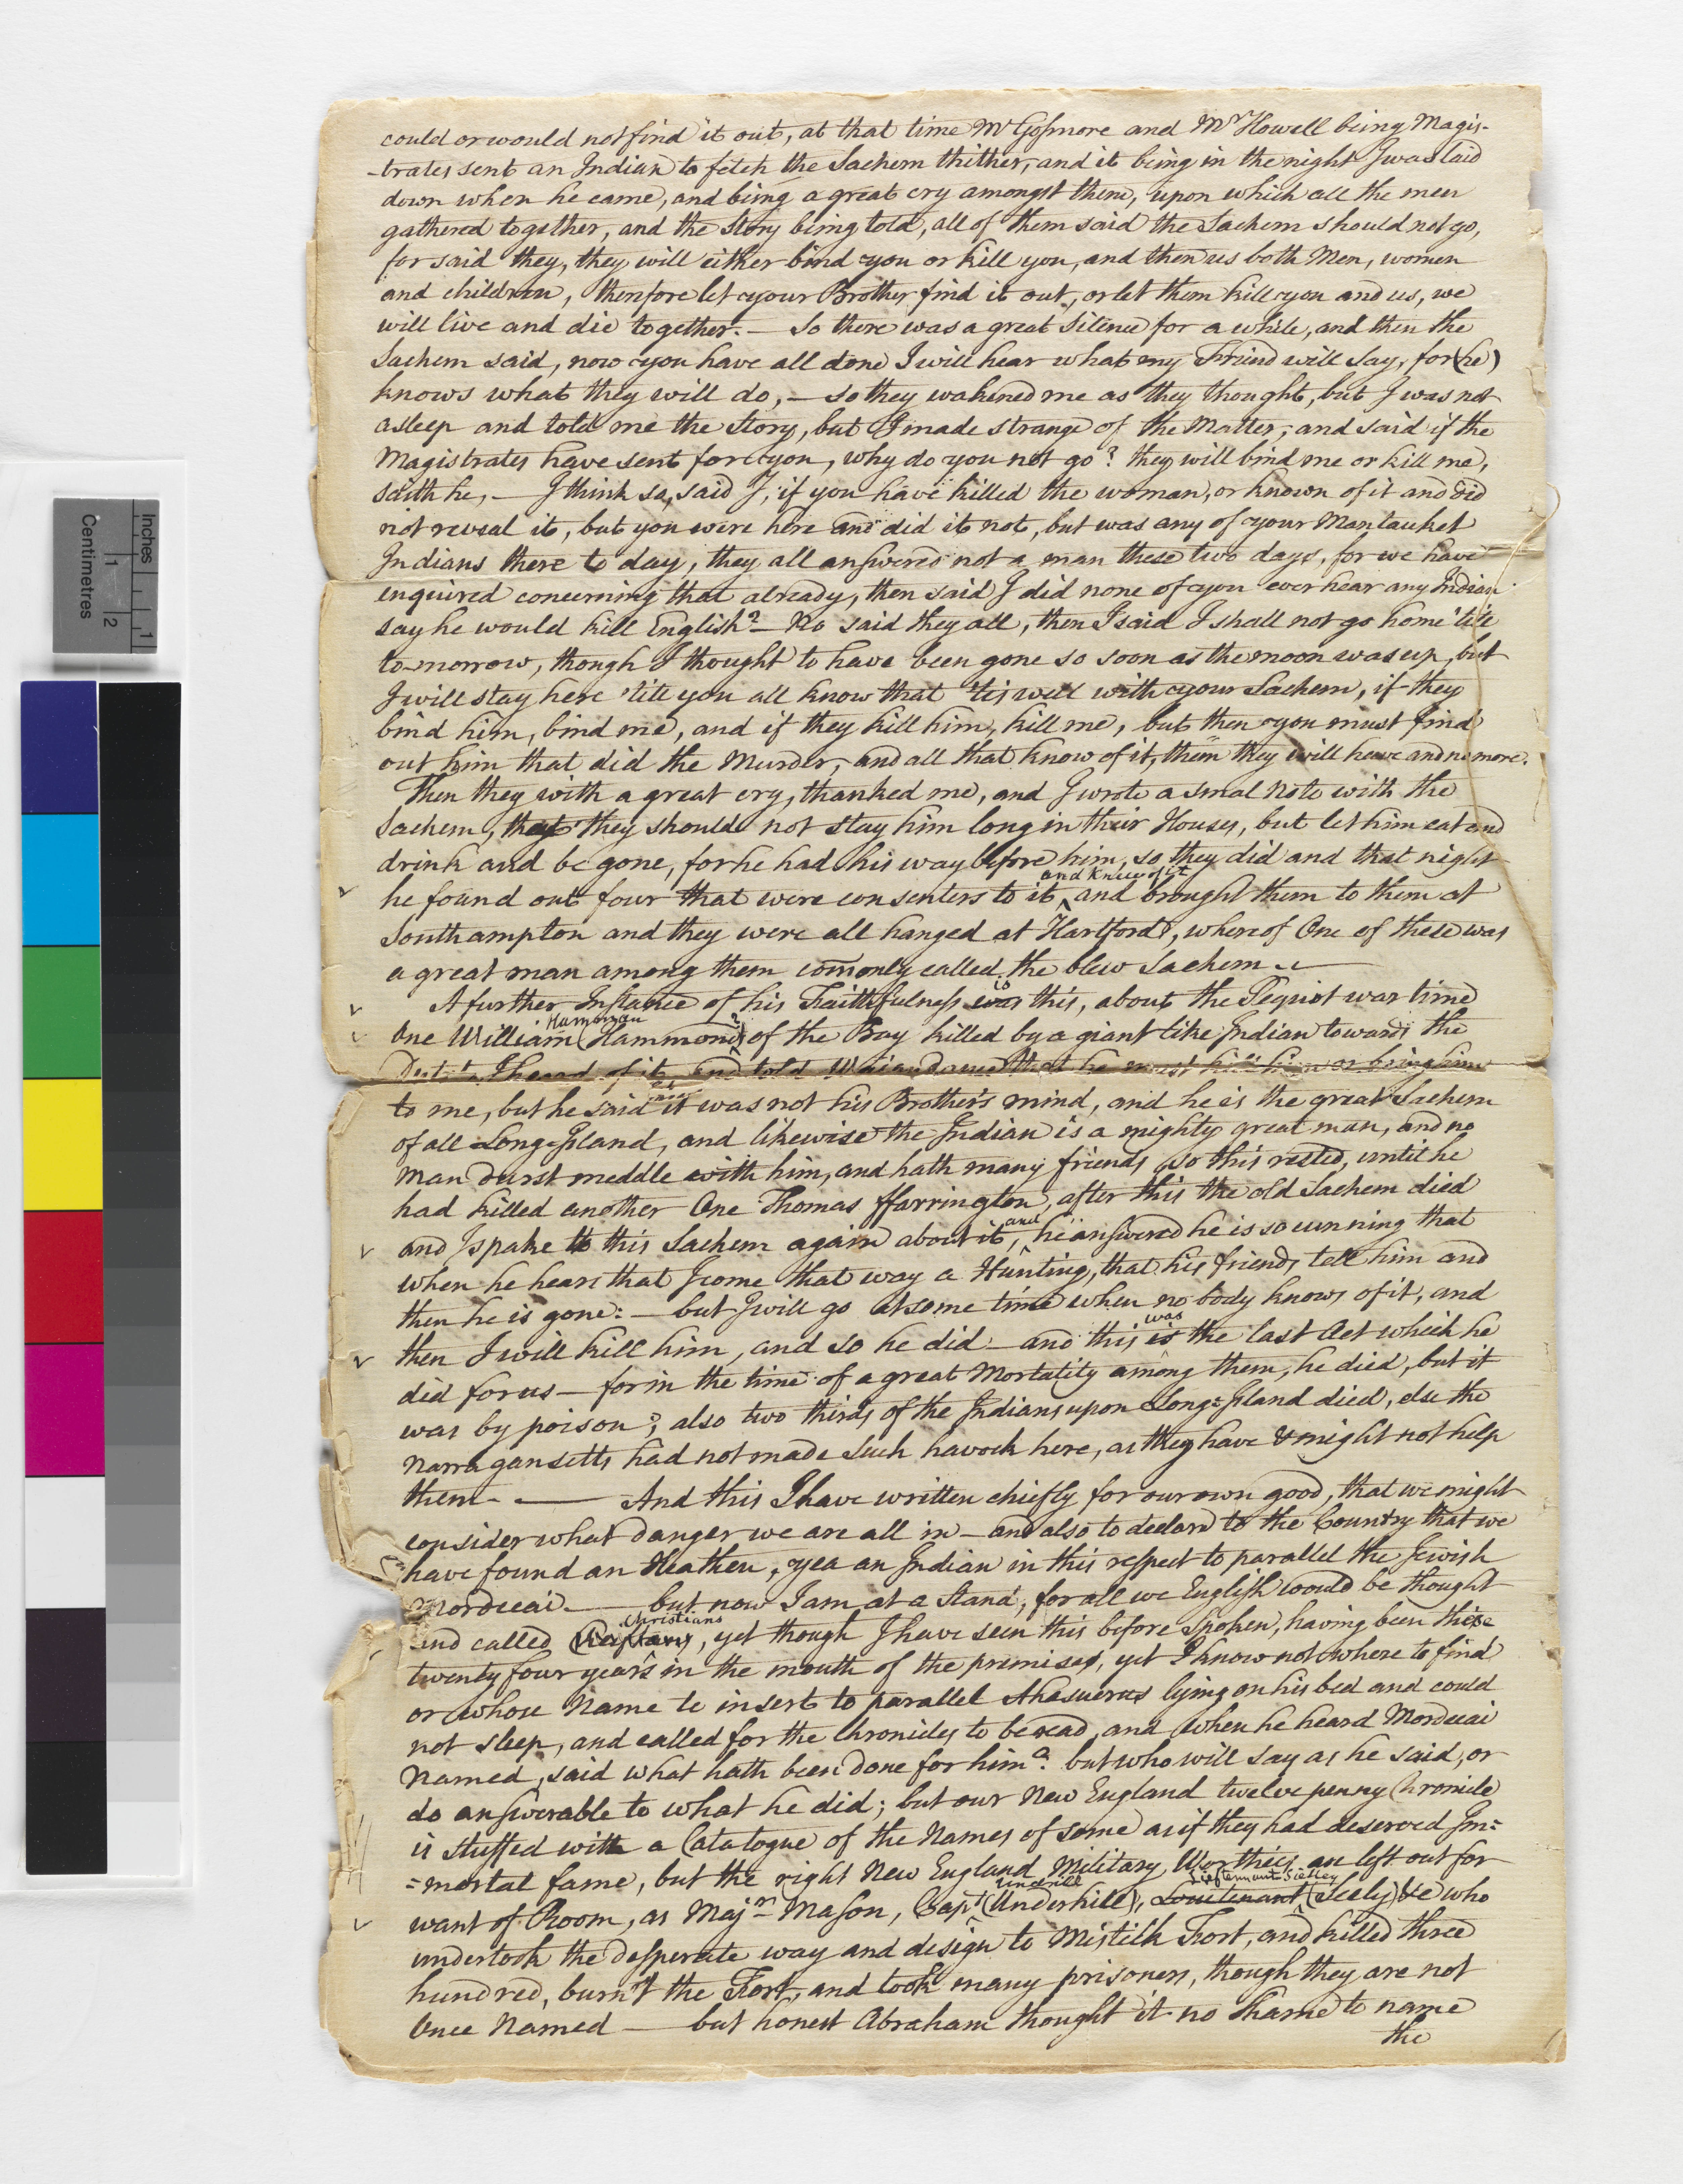 could or would not find it out, at that time Mr Gosmore and Mr Howell being Magis-
-trates sent an Indian to fetch the Sachem thither, and it being in the night I was laid
down when he came, and being a great cry amongst them, upon which all the men
gathered together, and the Story being told, all of them said the Sachem should not go,
for said they, they will either bind you or kill you, and then us both Men, women
and children, therefore let your Brother find it out, or let them kill you and us, we
will live and die together. — So there was a great Silence for a while, and then the
Sachem said, now you have all done I will hear what my Friend will Say, for (he)
knows what they will do, — so they wakened me as they thought, but I was not
asleep and told me the Story, but I made strange of the Matter, and said if the
Magistrates have sent for you, why do you not go? they will bind me or kill me,
saith he, — I think so, said I, if you have killed the woman, or known of it and did
not reveal it, but you were here and did it not, but was any of your Mantauket
Indians there to day, they all answered not a man these two days, for we have
enquired concerning that already, then said I did none of you ever hear any Indian
say he would kill English? — No said they all, then I said I shall not go home 'till
to-morrow, though I thought to have been gone so soon as the moon was up, but
I will stay here 'till you all know that 'tis well with your Sachem, if they
bind him, bind me, and if they kill him, kill me, but then you must find
out him that did the Murder, and all that know of it, them they will have and no more.
Then they with a great cry, thanked me, and I wrote a smal Note with the
Sachem, that they should not stay him long in their Houses, but let him eat and
drink and be gone, for he had his way before him, so they did and that night
and knew of it
he found out four that were consenters to it, and brought them to them at
Southampton and they were all hanged at Hartford, whereof One of these was
a great man among them comonly called the blew Sachem. —
is
A further Instance of his Faithfulness was this, about the Pequot war time
Hammman
One William (Hammond) of the Bay killed by a giant like Indian towards the
I heard of it and told that he must kill him or bring him
to me, but he said it was not his Brother's mind, and he is the great Sachem
of all Long-Island, and likewise the Indian is a mighty great man, and no
man durst meddle with him, and hath many friends, so this rested, until he
had killed another One Thomas ffarrington, after this the old Sachem died
and
and I spake to this Sachem again about it, he answered he is so cunning that
when he hears that I come that way a Hunting, that his friends tell him and
then he is gone: — but I will go at some time when no body knows of it, and
was
then I will kill him, and so he did — and this is the last Act which he
did for us — for in the time of a great Mortality among them, he died, but it
was by poison; also two thirds of the Indians upon Long=Island died, else the
Narragansetts had not made Such havock here, as they have & might not help
them. — And this I have written chiefly for our own good, that we might
consider what danger we are all in — and also to declare to the Country that we
have found an Heathen, yea an Indian in this respect to parallel the Jewish
Mordecai. — but now I am at a Stand, for all we English would be thought
Christians
and called , yet though I have seen this before Spoken, having been these
twenty four years in the mouth of the premises, yet I know not where to find
or whose Name to insert to parallel Ahasuerus lying on his bed and could
not Sleep, and called for the Chronicles to be read, and when he heard Mordecai
Named, said what hath been done for him? but who will say as he said, or
do answerable to what he did; but our New England twelve penny Chronicle
is stuffed with a Catalogue of the Names of some as if they had deserved Im=
=mortal fame, but the right New England Military Worthies are left out for
Undrill Lieftennant Sielley
want of Room, as Majr Mason, Capt (Underhill), Lieutenant (Seely) &c who
undertook the desperate way and design to Mistick Fort, and killed three
hundred, burn't the Fort, and took many prisoners, though they are not
Once Named — but honest Abraham thought it no Shame to name
the
Inches
Centimetres
1
2
1